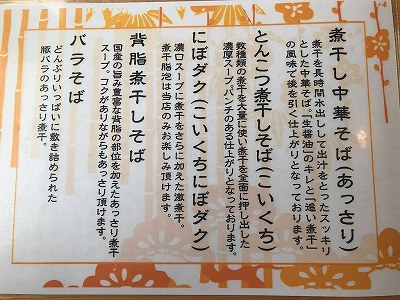 煮干し中華そば(あっさり)
煮干を長時間水出しして出汁をとったスッキリ
とした中華そば。「生醤油」のキレと「追い煮干」
の風味で後を引く仕上がりとなっております。
とんこつ煮干しそば(こいくち)
数種類の煮干を大量に使い煮干を全面に押し出した
濃厚スープパンチのある仕上がりとなっております。
にぼダク(こいくちにぼダク)
濃口スープに煮干をさらに加えた激煮干。
煮干脂泡は当店のみお楽しみ頂けます。
背脂煮干しそば
国産の旨み豊富な背脂の部位を加えたあっさり煮干
スープ。コクがありながらもあっさり頂けます。
バラそば
どんぶりいっぱいに敷き詰められた
豚バラのあっさり煮干。